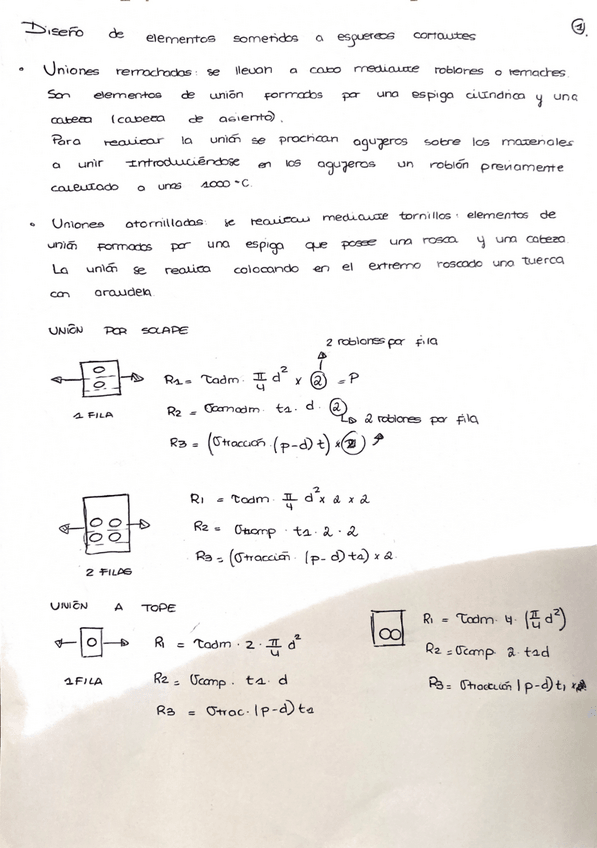 Diseño de elementos sometidos a esfuerzos cortantes
1
• Uniones remachadas: se llevan a cabo mediante roblones o remaches.
Son elementos de unión formados por una espiga cilíndrica y una
cabeza (cabeza de asiento).
Para realizar la unión se practican agujeros sobre los materiales
a unir introduciéndose en los agujeros un roblón previamente
calentado a unos 1000 °C.
• Uniones atornilladas: se realizan mediante tornillos: elementos de
unión formados por una espiga que posee una rosca y una cabeza.
La unión se realiza colocando en el extremo roscado una tuerca
con arandela.
UNIÓN POR SOLAPE
2 roblones por fila
R1 = τadm. π/4 d² x 2 = P
1 FILA
R2 = σcomadm. t1. d. 2
2 roblones por fila
R3 = (σtracción. (p-d) t) x 2
R1 = τadm. π/4 d² x 2 x 2
R2 = σcomp. t1. 2. 2
R3 = (σtracción. (p-d) t1) x 2
2 FILAS
UNIÓN A TOPE
1 FILA
R1 = τadm. 2. π/4 d²
R2 = σcomp. t1. d
R3 = σtrac. (p-d) t1
R1 = τadm. 4. (π/4 d²)
R2 = σcomp 2. t1d
R3 = σtracción (p-d) t1